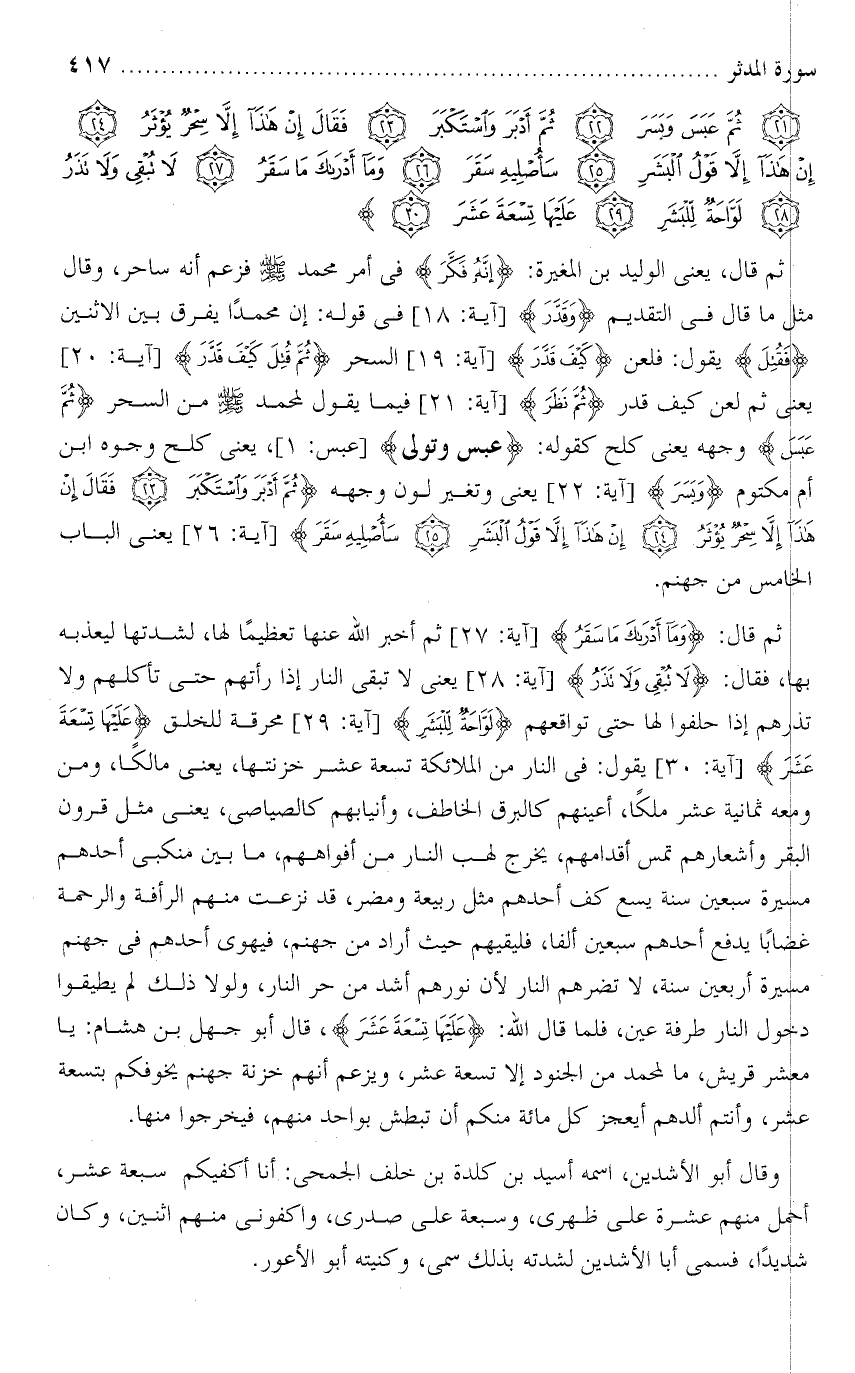 سورة المدثر ........................................................................ ٤١٧
(٢١) ثُمَّ عَبَسَ وَبَسَرَ (٢٢) ثُمَّ أَدْبَرَ وَٱسْتَكْبَرَ (٢٣) فَقَالَ إِنْ هَٰذَآ إِلَّا سِحْرٌ يُؤْثَرُ (٢٤)
إِنْ هَٰذَآ إِلَّا قَوْلُ ٱلْبَشَرِ (٢٥) سَأُصْلِيهِ سَقَرَ (٢٦) وَمَآ أَدْرَىٰكَ مَا سَقَرُ (٢٧) لَا تُبْقِى وَلَا تَذَرُ
(٢٨) لَوَّاحَةٌ لِّلْبَشَرِ (٢٩) عَلَيْهَا تِسْعَةَ عَشَرَ (٣٠) ﴾
ثم قال، يعنى الوليد بن المغيرة: ﴿إِنَّهُۥ فَكَّرَ﴾ فى أمر محمد ﷺ فزعم أنه ساحر، وقال
مثل ما قال فى التقديم ﴿وَقَدَّرَ﴾ [آية: ١٨] فى قوله: إن محمدًا يفرق بين الاثنين
﴿فَقُتِلَ﴾ يقول: فلعن ﴿كَيْفَ قَدَّرَ﴾ [آية: ١٩] السحر ﴿ثُمَّ قُتِلَ كَيْفَ قَدَّرَ﴾ [آية: ٢٠]
يعنى ثم لعن كيف قدر ﴿ثُمَّ نَظَرَ﴾ [آية: ٢١] فيما يقول لمحمد ﷺ من السحر ﴿ثُمَّ
عَبَسَ﴾ وجهه يعنى كلح كقوله: ﴿عبس وتولى﴾ [عبس: ١]، يعنى كلح وجوه ابن
أم مكتوم ﴿وَبَسَرَ﴾ [آية: ٢٢] يعنى وتغير لون وجهه ﴿ثُمَّ أَدْبَرَ وَٱسْتَكْبَرَ (٢٣) فَقَالَ إِنْ
هَٰذَآ إِلَّا سِحْرٌ يُؤْثَرُ (٢٤) إِنْ هَٰذَآ إِلَّا قَوْلُ ٱلْبَشَرِ (٢٥) سَأُصْلِيهِ سَقَرَ﴾ [آية: ٢٦] يعنى الباب
الخامس من جهنم.
ثم قال: ﴿وَمَآ أَدْرَىٰكَ مَا سَقَرُ﴾ [آية: ٢٧] ثم أخبر الله عنها تعظيمًا لها، لشدتها ليعذبه
بها، فقال: ﴿لَا تُبْقِى وَلَا تَذَرُ﴾ [آية: ٢٨] يعنى لا تبقى النار إذا رأتهم حتى تأكلهم ولا
تذرهم إذا حلفوا لها حتى تواقعهم ﴿لَوَّاحَةٌ لِّلْبَشَرِ﴾ [آية: ٢٩] محرقة للخلق ﴿عَلَيْهَا تِسْعَةَ
عَشَرَ﴾ [آية: ٣٠] يقول: فى النار من الملائكة تسعة عشر خزنتها، يعنى مالكًا، ومن
ومعه ثمانية عشر ملكًا، أعينهم كالبرق الخاطف، وأنيابهم كالصياصى، يعنى مثل قرون
البقر وأشعارهم تمس أقدامهم، يخرج لهب النار من أفواههم، ما بين منكبى أحدهم
مسيرة سبعين سنة يسع كف أحدهم مثل ربيعة ومضر، قد نزعت منهم الرأفة والرحمة
غضابًا يدفع أحدهم سبعين ألفا، فليقيهم حيث أراد من جهنم، فيهوى أحدهم فى جهنم
مسيرة أربعين سنة، لا تضرهم النار لأن نورهم أشد من حر النار، ولولا ذلك لم يطيقوا
دخول النار طرفة عين، فلما قال الله: ﴿عَلَيْهَا تِسْعَةَ عَشَرَ﴾، قال أبو جهل بن هشام: يا
معشر قريش، ما لمحمد من الجنود إلا تسعة عشر، ويزعم أنهم خزنة جهنم يخوفكم بتسعة
عشر، وأنتم ألدهم أيعجز كل مائة منكم أن تبطش بواحد منهم، فيخرجوا منها.
وقال أبو الأشدين، اسمه أسيد بن كلدة بن خلف الجمحى: أنا أكفيكم سبعة عشر،
أحمل منهم عشرة على ظهرى، وسبعة على صدرى، واكفونى منهم اثنين، وكان
شديدًا، فسمى أبا الأشدين لشدته بذلك سمى، وكنيته أبو الأعور.